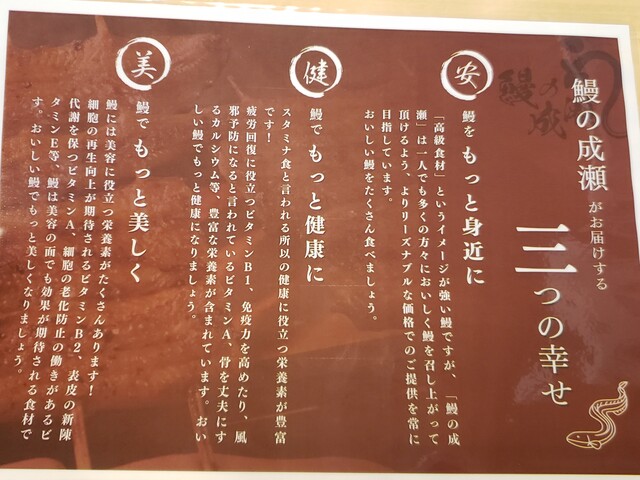 鰻の成瀬がお届けする
三つの幸せ
鰻の成瀬
安
鰻をもっと身近に
「高級食材」というイメージが強い鰻ですが、「鰻の成
瀬」は一人でも多くの方々においしく鰻を召し上がって
頂けるよう、よりリーズナブルな価格でのご提供を常に
目指しています。
おいしい鰻をたくさん食べましょう。
健
鰻でもっと健康に
スタミナ食と言われる所以の健康に役立つ栄養素が豊富
です!
疲労回復に役立つビタミンB1、免疫力を高めたり、風
邪予防になると言われているビタミンA、骨を丈夫にす
るカルシウム等、豊富な栄養素が含まれています。おい
しい鰻でもっと健康になりましょう。
美
鰻でもっと美しく
鰻には美容に役立つ栄養素がたくさんあります!
細胞の再生向上が期待されるビタミンB2、表皮の新陳
代謝を保つビタミンA、細胞の老化防止の働きがあるビ
タミンE等、鰻は美容の面でも効果が期待される食材で
す。おいしい鰻でもっと美しくなりましょう。